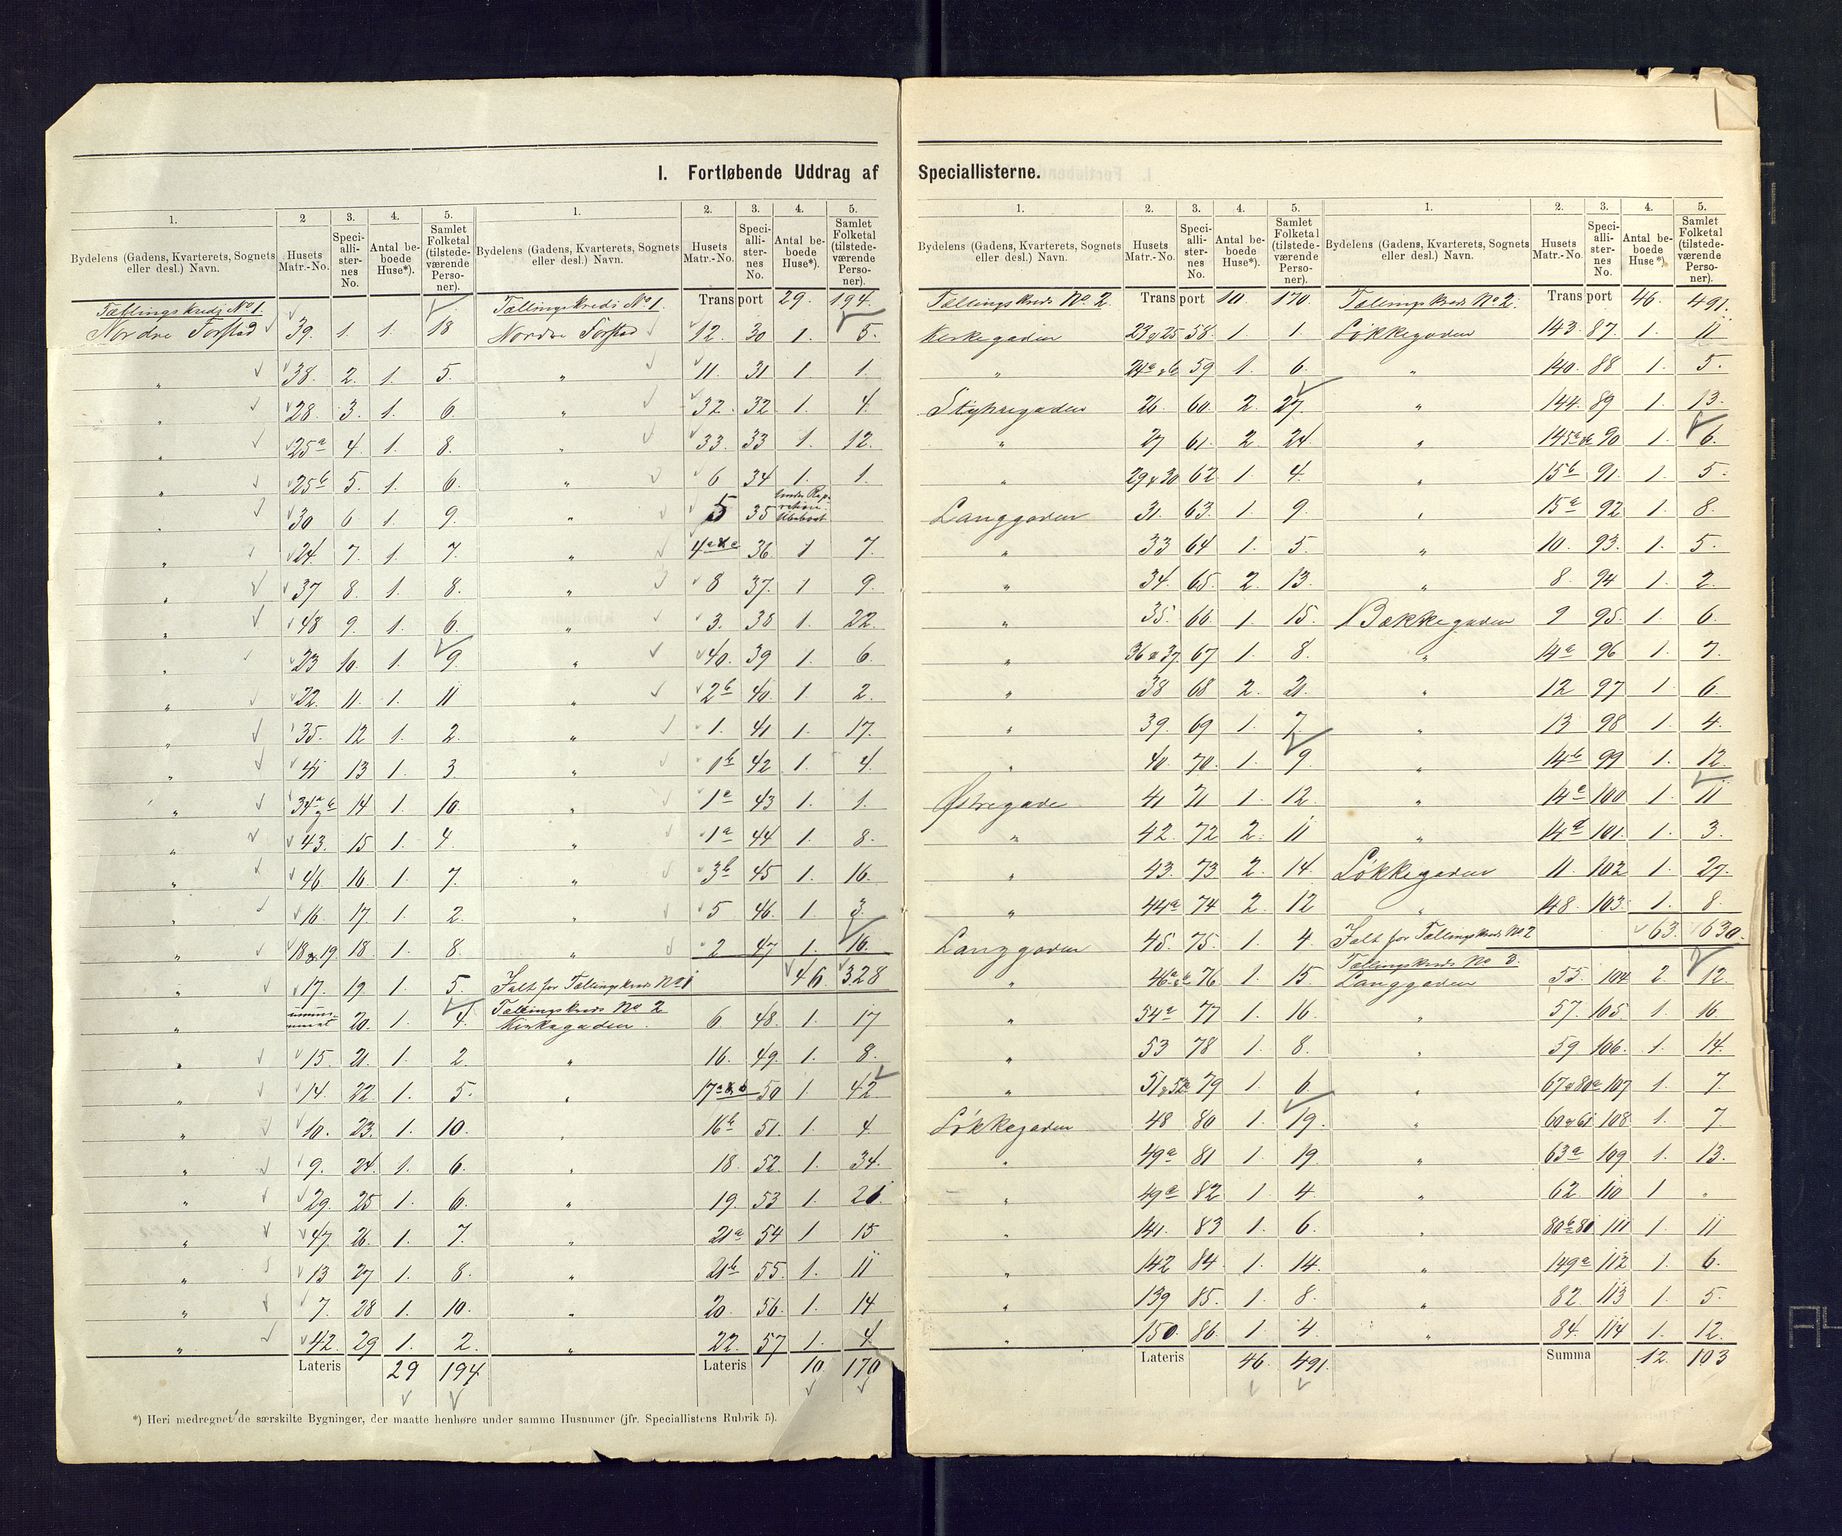 I. Fortløbende Uddrag af Speciallisterne.
1. 2 3. 4. 5. 1. 2. 3. 4. 5.
Bydelens (Gadens, Kvarterets, Sognets eller desl.) Navn. Husets Matr.-No. Speciallisternes No. Antal beboede Huse*). Samlet Folketal (tilstedeværende Personer). Bydelens (Gadens, Kvarterets, Sognets eller desl.) Navn. Husets Matr.-No. Speciallisternes No. Antal beboede Huse*). Samlet Folketal (tilstedeværende Personer).
Tællingskreds No 1. Tællingskreds No 1. Transport 29. 194.
Nordre Forstad 39. 1. 1. 18 Nordre Forstad 12. 30 1. 5.
" 38. 2. 1. 5. " 11. 31 1 1.
" 28. 3. 1. 6. " 32. 32. 1. 4.
" 25a 4. 1. 8. " 33. 33 1. 12.
" 25b 5. 1. 6. " 6 34 1. 1.
" 30 6 1. 9. " 5 35
" 24. 7. 1. 7. " 36. 1 7.
" 37 8. 1. 8. " 8 37. 1 9.
" 48 9. 1. 6. " 3. 38 1. 22.
" 23 10. 1. 9. " 40. 39 1. 6.
" 22. 11. 1. 11 " 2b 40. 1 2.
" 35. 12 1. 2. " 1. 41 1. 17.
" 41 13 1. 3 " 1b 42 1. 4.
" 14 1. 10. " 1a 43 1. 1.
" 43. 15 1. 4. " 1a 44 1. 8.
" 46 16. 1. 7. " 3b 45 1. 16.
" 16. 17. 1. 2. " 5 46. 1. 3.
" 18 & 19 18. 1. 8. " 2 47 1. 16.
" 17. 19 1. 5. Ialt for Tællingskreds No 1 46. 328
" 20. 1. 4. Tællingskreds No 2
Kirkegaden. 6 48. 1. 17
" 15. 21. 1. 2. " 16. 49. 1. 8.
" 14. 22 1. 5. " 50 1 42
" 10. 23. 1. 10. " 16b 51. 1. 4
" 9. 24. 1. 6. " 18. 52 1. 34.
" 29. 25 1. 6. " 19. 53 1.
" 47. 26. 1. 7. " 21a 54 1 15
" 13 27 1. 8. " 21b 55. 1. 11
" 7. 28 1. 10. " 20. 56. 1. 14
" 42. 29 1. 2. " 22. 57 1. 4.
Lateris 29 194 Lateris 10 170
*) Heri medregnet de særskilte Bygninger, der maatte henhøre under samme Husnumer (jfr. Speciallistens Rubrik 5).
1. 2. 3. 4. 5. 1. 2. 3. 4. 5.
Bydelens (Gadens, Kvarterets, Sognets eller desl.) Navn. Husets Matr.-No. Speciallisternes No. Antal beboede Huse*). Samlet Folketal (tilstedeværende Personer). Bydelens (Gadens, Kvarterets, Sognets eller desl.) Navn. Husets Matr.-No. Speciallisternes No. Antal beboede Huse*). Samlet Folketal (tilstedeværende Personer).
Tællingskreds No. 2 Transport 10. 170. Tællingskreds No 2. Transport 46. 491.
Kirkegaden 58. 1. 1. Løkkegaden 143. 87. 1. 11
" 59 1. 6. " 140. 88 1. 5.
Stykregaden 26. 60. 2. 27. " 144. 89 1. 13.
" 27 61. 2. 24 " 90 1. 6.
" 29 & 30 62. 1. 4. " 15b 91. 1. 5.
Langgaden 31. 63. 1. 9. " 15a 92 1. 8.
" 33 64 1. 5. " 10. 93. 1. 5.
" 34. 65. 2. 13. " 8. 94 1. 2.
" 35. 66. 1. 15. Bækkegaden 9 95. 1. 6.
" 36 & 37 67 1. 8. " 14a 96 1. 7.
" 38 68 2. 21. " 12 97 1. 6.
" 39. 69. 1. 7. " 13 98 1. 4.
" 40. 70. 1. 9. " 14b 99 1. 12.
Østregade. 41 71 1. 12. " 100 1. 11
" 42. 72 2. 11 " 101. 1. 3.
" 43. 73 2. 14. Løkkegaden 11. 102 1. 27.
" 44a 74 2. 12 " 103. 1. 8.
Langgaden 45. 75. 1. 4. Ialt for Tællingskreds No 2 63. 630.
Tællingskreds No 3.
" 76 1. 15. Langgaden 55. 104 2 12.
" 77 1. 16. " 57. 105 1. 16.
" 53 78 1. 8. " 59 106. 1. 14.
" 79 1. 6. " 107 1. 7
Løkkegaden 48 80 1. 19. " 60 & 61 108. 1. 7
" 49a 81 1. 19. " 63a 109 1. 13.
" 82 1. 4. " 62. 110 1 "
" 141. 83 1. 6. " 111 1 11
" 142 84 1. 14. " 149a 112 1. 6.
" 139 85. 1. 8. " 82. 113 1. 5.
" 150. 86. 1. 4. " 84. 114 1. 12.
Lateris 46. 491. Summa 12. 103